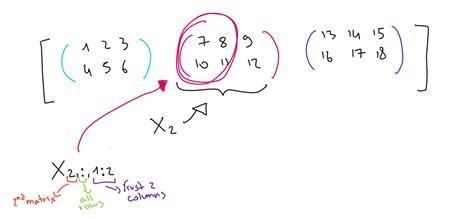 [ ( 1 2 3 ( 7 8 9 ) ( 13 14 15 ) ]
4 5 6 10 11 12 16 17 18
X₂
X₂,:,1:2
2nd matrix
all rows
first 2 columns